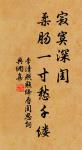 寂寞深闺
柔肠一寸愁千缕
李清照点绛唇闺思词